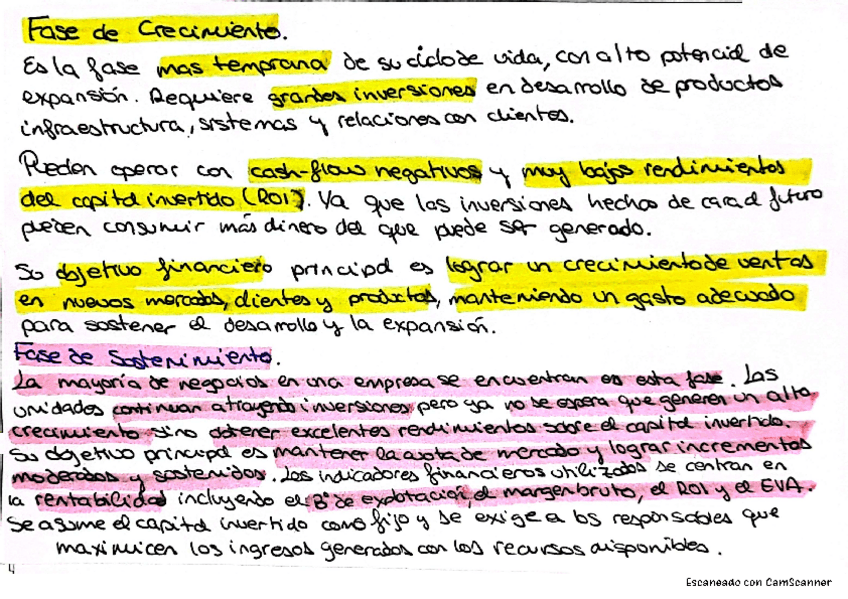 Fase de Crecimiento.
Es la fase mas temprana de su ciclo de vida, con alto potencial de
expansión. Requiere grandes inversiones en desarrollo de productos
infraestructura, sistemas y relaciones con clientes.
Pueden operar con cash-flow negativos y muy bajos rendimientos
del capital invertido (ROI). Ya que las inversiones hechas de cara al futuro
pueden consumir más dinero del que puede ser generado.
Su objetivo financiero principal es lograr un crecimiento de ventas
en nuevos mercados, clientes y productos, manteniendo un gasto adecuado
para sostener el desarrollo y la expansión.
Fase de Sostenimiento.
La mayoría de negocios en una empresa se encuentran en esta fase. Las
unidades continuan atrayendo inversiones pero ya no se espera que generen un alto
crecimiento sino obtener excelentes rendimientos sobre el capital invertido.
Su objetivo principal es mantener la cuota de mercado y lograr incrementos
moderados y sostenidos. Los indicadores financieros utilizados se centran en
la rentabilidad incluyendo el Bº de explotación, el margen bruto, el ROI y el EVA.
Se asume el capital invertido como fijo y se exige a los responsables que
maximicen los ingresos generados con los recursos disponibles.
4
Escaneado con CamScanner